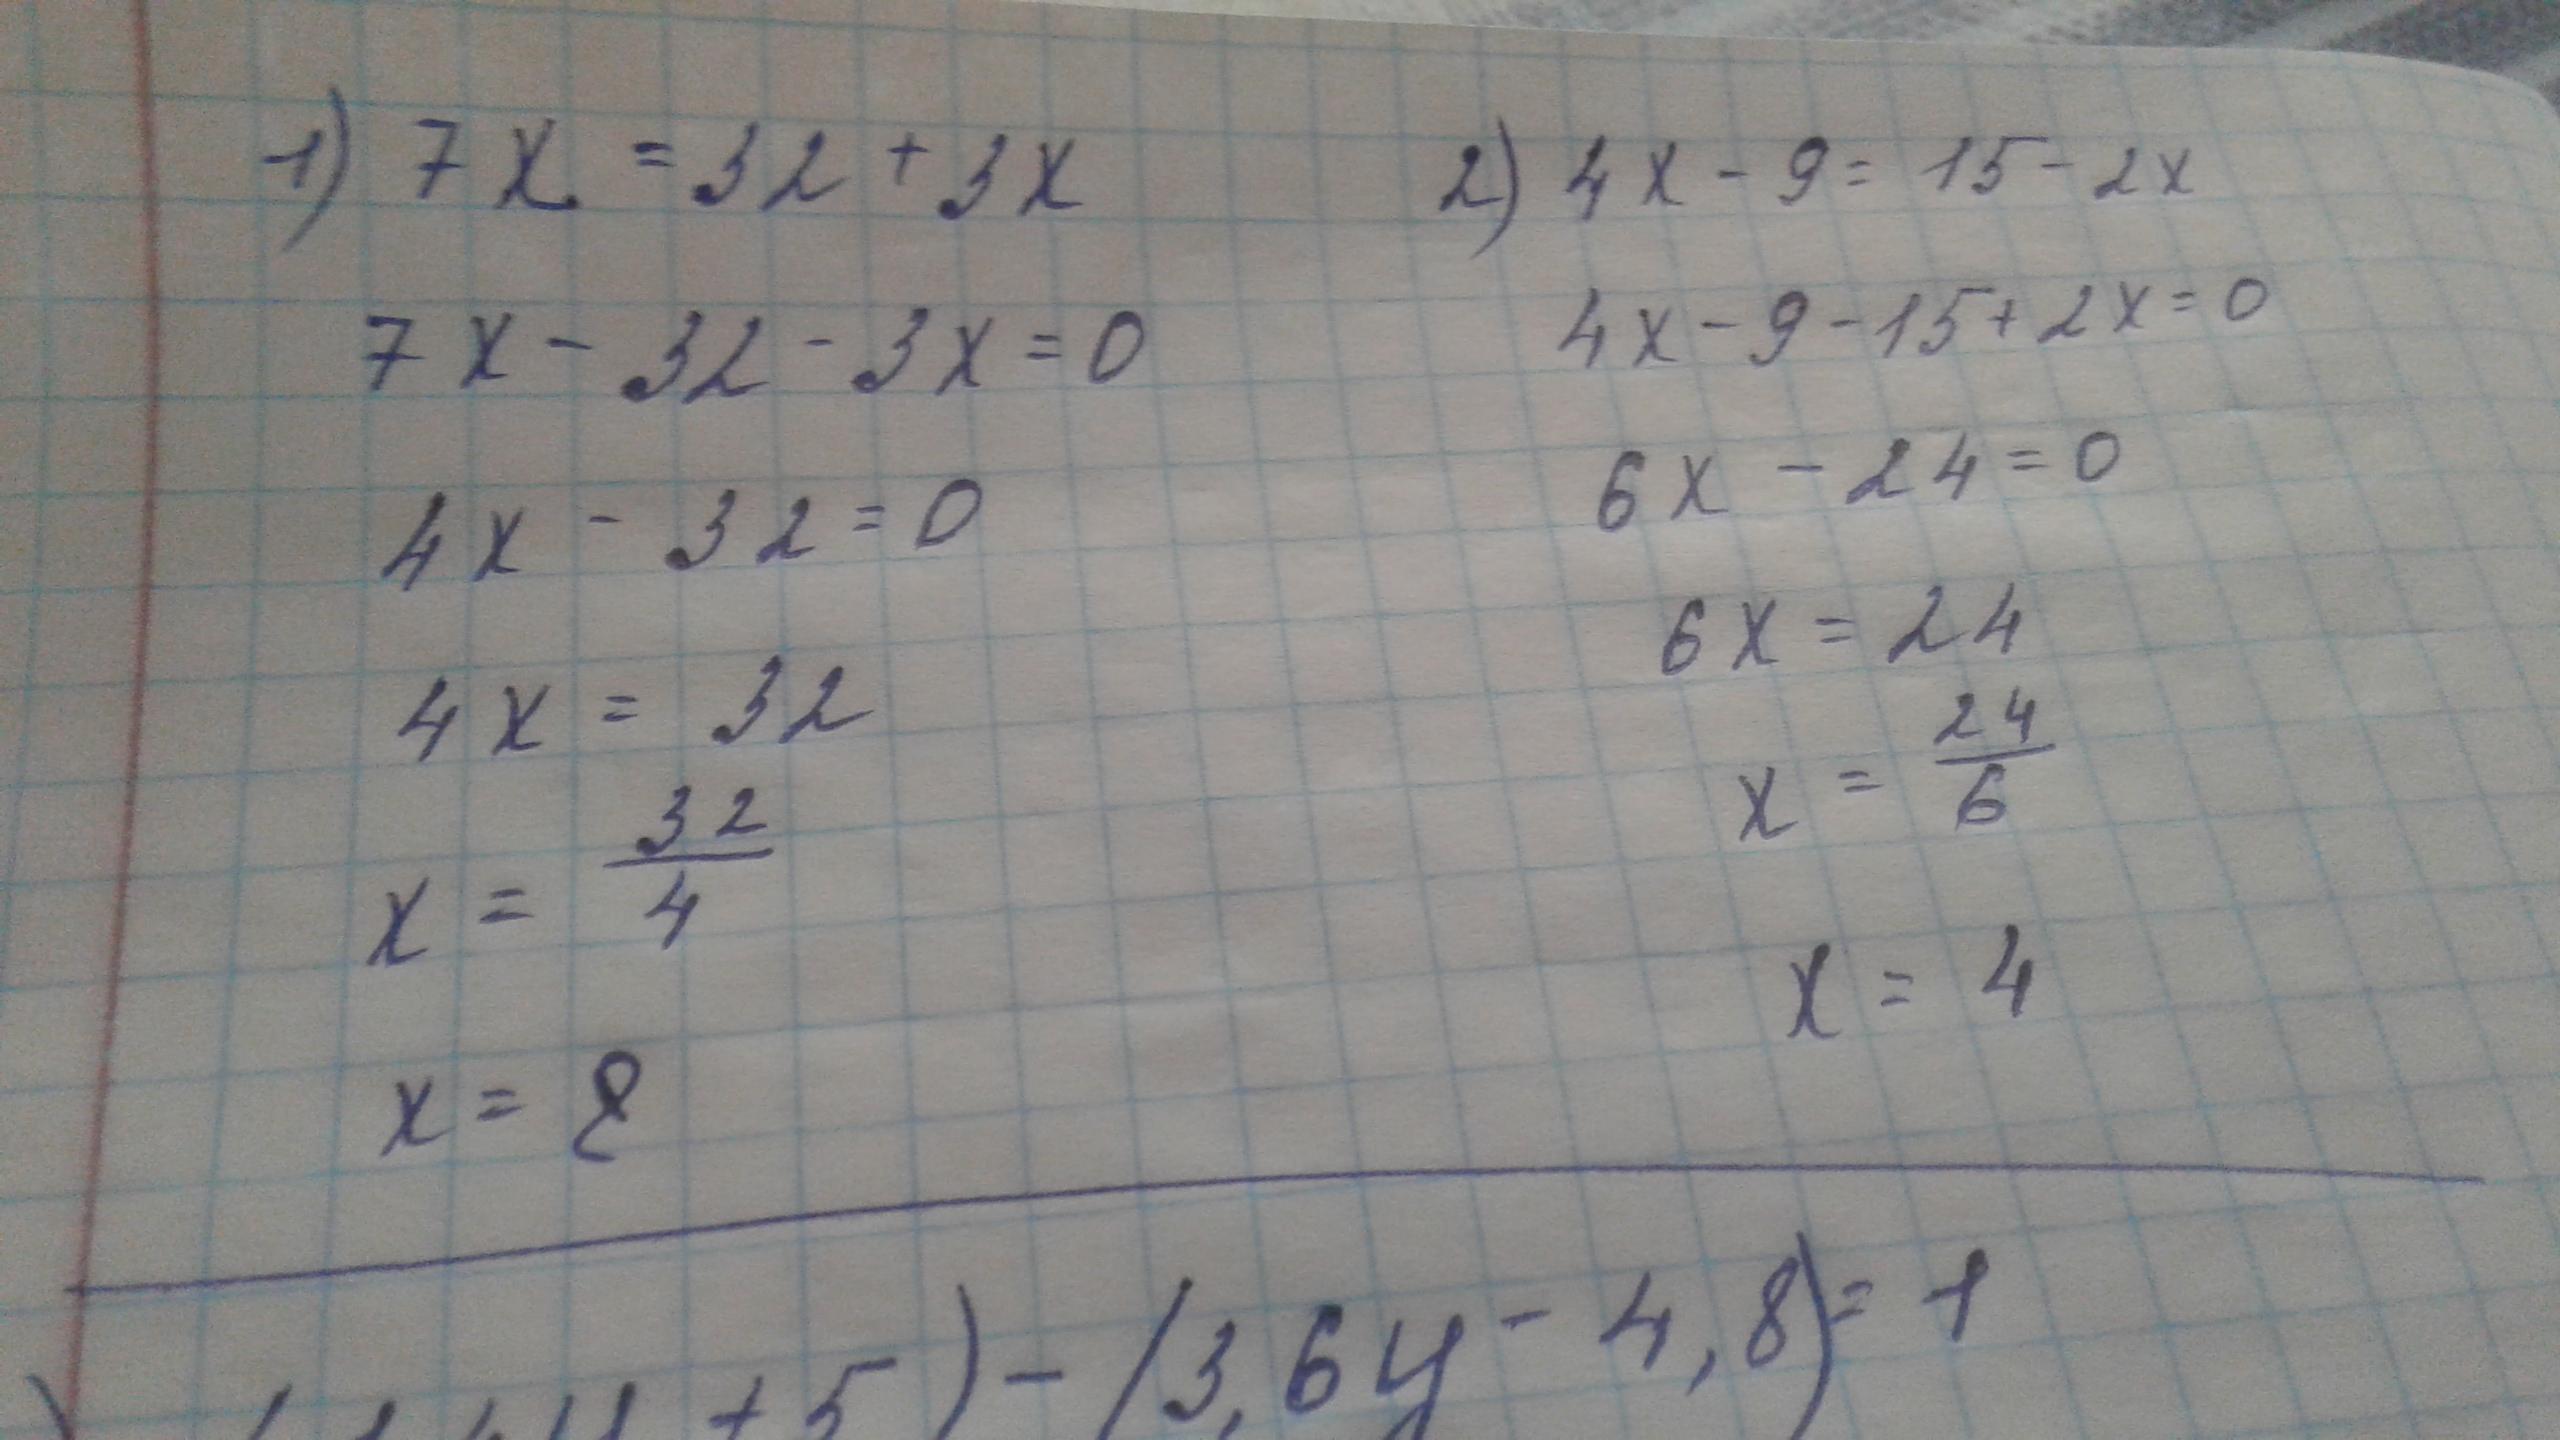 1) 7x = 32 + 3x
7x - 32 - 3x = 0
4x - 32 = 0
4x = 32
x = 32/4
x = 8
2) 4x - 9 = 15 - 2x
4x - 9 - 15 + 2x = 0
6x - 24 = 0
6x = 24
x = 24/6
x = 4
+ 5) - (3,6y - 4,8) = 1